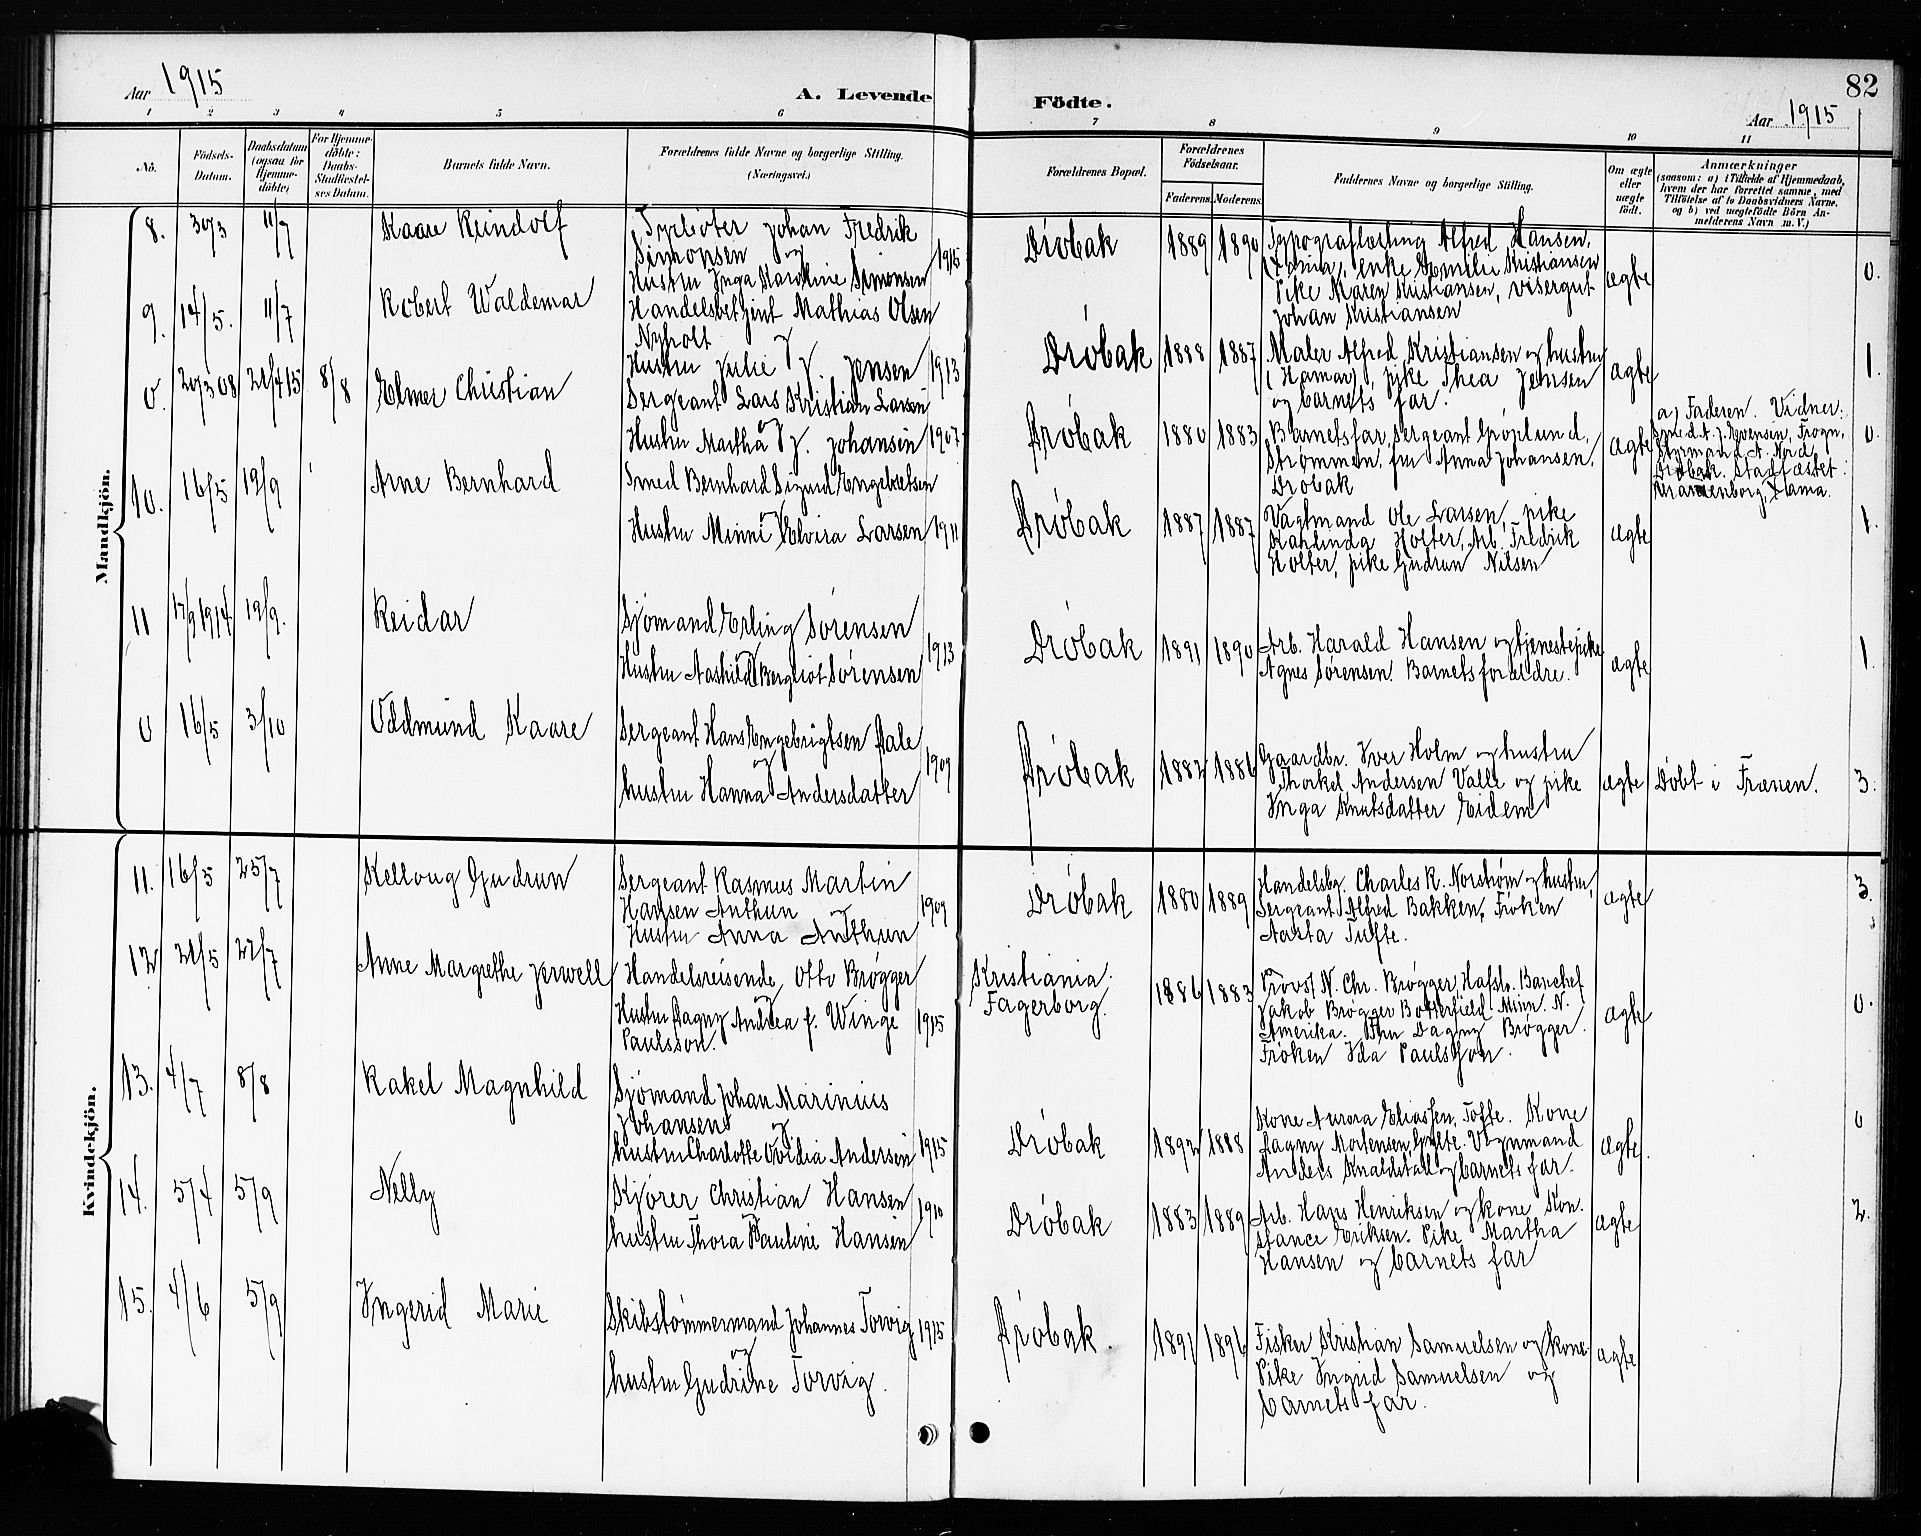 82
Aar 1915
A. Levende
Födte.
Aar 1915
1 2 3 4 5 6 7 8 9 10 11
No.
Födsels-
Datum.
Daabsdatum
(ogsaa for
Hjemme-
döbte)
For Hjemme-
döbte:
Daabs-
Stadfæstel-
ses Datum.
Barnets fulde Navn.
Forældrenes fulde Navne og borgerlige Stilling.
(Næringsvei.)
Forældrenes Bopæl.
Forældrenes
Födselsaar.
Faderens. Moderens.
Faddernes Navne og borgerlige Stilling.
Om ægte
eller
uægte
födt.
Anmærkninger
(saasom: a) i Tilfælde af Hjemmedaab,
hvem der har forrettet samme, med
Tilföielse af to Daabsvidners Navne,
og b) ved uægtefödte Börn An-
melderens Navn m. V.)
Mandkjön.
8. 30/3 11/7 Kaare Reindolf
Johan Fredrik
Simonsen og
Hustru Inga Karoline Simonsen 1915
Drøbak 1889 1890
Alfred Hansen,
enke Emilie Kristiansen
Pike Maren Kristiansen, visergut
Johan Kristiansen
ægte 0.
9. 14/5. 11/7 Robert Waldemar
Handelsbetjent Mathias Olsen
Nyholt og
Hustru Julie f. Jensen 1913
Drøbak 1888 1887
Maler Alfred Kristiansen og hustru
(Hamar), pike Thea Jensen
og barnets far.
ægte 1.
0. 20/3 08 21/4 15 8/8 Elmer Christian
Sergeant Lars Kristian Larsen
og
Hustru Martha f. Johansen 1907
Drøbak 1880 1883
Barnets far, sergeant
Strømmen, fru Anna Johansen,
Drøbak
ægte
a) Faderen. Vidner:
Smed A. J. Evensen, Frogn,
Styrmand A. Nord,
Drøbak. Stadfæstet:
0.
10. 16/5 19/9 Arne Bernhard
Smed Bernhard Sigurd Engebretsen
Hustru Minni Elvira Larsen 1911
Drøbak 1887 1887
Vagtmand Ole Larsen, pike
Holter, Arb. Fredrik
Holter, pike Gudrun Nilsen
ægte 1.
11 17/9 1914 19/9. Reidar
Sjømand Erling Sørensen
Hustru Aashild Bergliot Sørensen 1913
Drøbak 1891 1890
Arb. Harald Hansen og tjenestepike
Agnes Sørensen. Barnets forældre.
ægte 1.
0 16/5 3/10 Oddmund Kaare
Sergeant Hans Engebrigtsen Aale
og
hustru Hanna Andersdatter 1909
Drøbak 1882 1886
Gaardbr. Iver Holm og hustru
Thorkel Andersen Valle og pike
Inga Knutsdatter Eidem
ægte Døbt i Frænen. 3.
Kvindekjön.
11. 16/5 25/7 Kellaug Gudrun
Sergeant Rasmus Martin
Hansen Anthun og
Hustru Anna Anthun 1909
Drøbak 1880 1889
Handelsbg. Charles R. Norstrøm og hustru,
Sergeant Alfred Bakken, Frøken
Aasta Tufte.
ægte 3.
12 21/5 22/7 Anne Margrethe Jerwell
Handelsreisende Otto Brøgger
og
Hustru Dagny Andrea f. Winge 1915
Paulsson.
Kristiania
Fagerborg.
1886 1883
Provst N. Chr. Brøgger, Hafslo. Bankchef
Jakob Brøgger Botterfield Minn. N.
Amerika. Fru Dagny Brøgger.
Frøken Ida Paulsson.
ægte 0.
13. 4/7 8/8 Rakel Magnhild
Sjømand Johan Marinius
Johansen og
hustru Charlotte Ovidia Andersen 1915
Drøbak 1892 1888
Kone Aurora Eliassen, Tofte. Kone
Dagny Mortensen, Gylte.
Anders og barnets far.
ægte. 0
14. 5/4 5/9 Nelly
Kjører Christian Hansen
og
hustru Thora Pauline Hansen 1910
Drøbak 1883 1889
Arb. Hans Henriksen og kone Kon-
stance Eriksen. Pike Martha
Hansen og barnets far
ægte 2.
15. 4/6 5/9 Ingerid Marie
Skibstømmermand Johannes Torvig
og
hustru Gudrine Torvig. 1915
Drøbak. 1891 1896
Fisker Kristian Samuelsen og kone
Pike Ingrid Samuelsen og
barnets far.
ægte